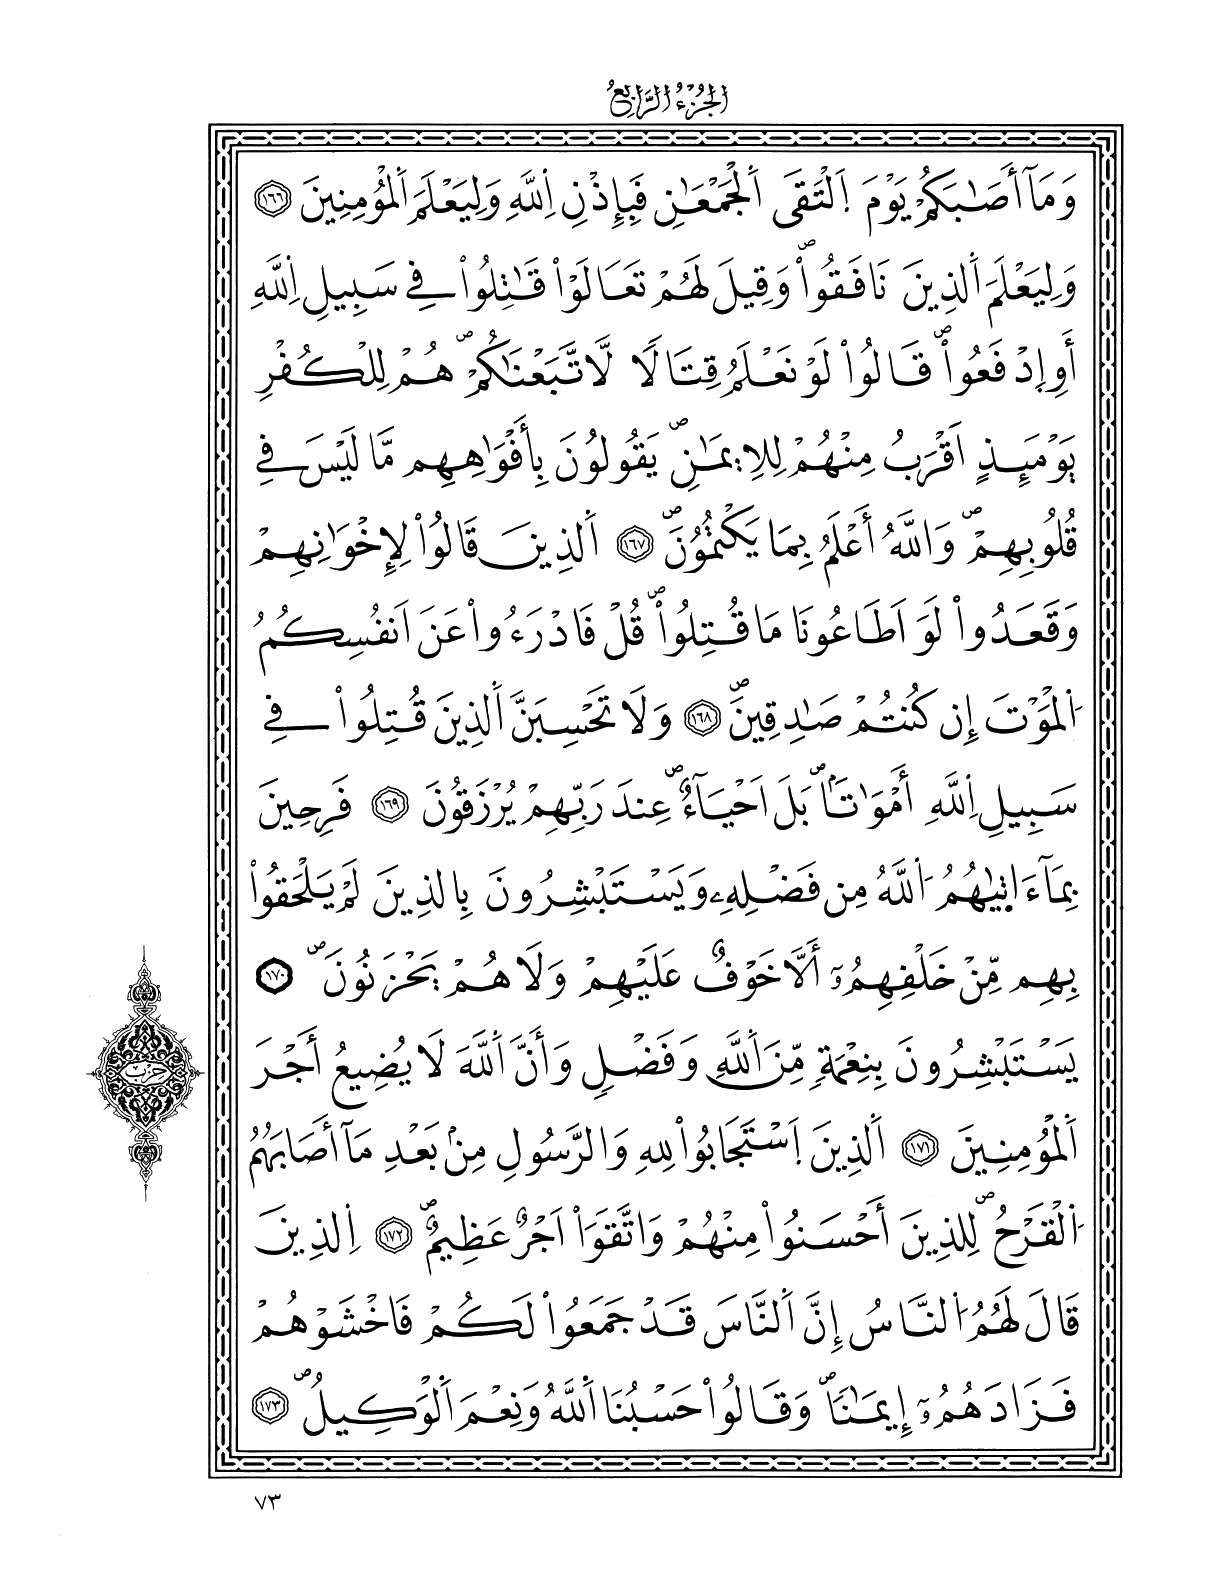 الجُزْءُ الرَّابِعُ
وَمَآ أَصَٰبَكُمْ يَوْمَ اَ۬لْتَقَى اَ۬لْجَمْعَٰنِ فَبِإِذْنِ اِ۬للَّهِ وَلِيَعْلَمَ اَ۬لْمُؤْمِنِينَ ١٦٦
وَلِيَعْلَمَ اَ۬لذِينَ نَافَقُواْۖ وَقِيلَ لَهُمْ تَعَالَوْاْ قَٰتِلُواْ فِے سَبِيلِ اِ۬للَّهِ
أَوِ اِ۪دْفَعُواْۖ قَالُواْ لَوْ نَعْلَمُ قِتَالًا لَّاتَّبَعْنَٰكُمْۖ هُمْ لِلْكُفْرِ
يَوْمَئِذٍ اَقْرَبُ مِنْهُمْ لِلِايمَٰنِۖ يَقُولُونَ بِأَفْوَٰهِهِم مَّا لَيْسَ فِے
قُلُوبِهِمْۖ وَاللَّهُ أَعْلَمُ بِمَا يَكْتُمُونَۖ ١٦٧ اَ۬لذِينَ قَالُواْ لِإِخْوَٰنِهِمْ
وَقَعَدُواْ لَوَ اَطَاعُونَا مَا قُتِلُواْۖ قُلْ فَادْرَءُواْ عَنَ اَنفُسِكُمُ
اُ۬لْمَوْتَ إِن كُنتُمْ صَٰدِقِينَۖ ١٦٨ وَلَا تَحْسِبَنَّ اَ۬لذِينَ قُتِلُواْ فِے
سَبِيلِ اِ۬للَّهِ أَمْوَٰتَاۢۖ بَلَ اَحْيَآءٌۖ عِندَ رَبِّهِمْ يُرْزَقُونَ ١٦٩ فَرِحِينَ
بِمَآ ءَات۪يٰهُمُ اُ۬للَّهُ مِن فَضْلِهِۦ وَيَسْتَبْشِرُونَ بِالذِينَ لَمْ يَلْحَقُواْ
بِهِم مِّنْ خَلْفِهِمُۥٓ أَلَّا خَوْفٌ عَلَيْهِمْ وَلَا هُمْ يَحْزَنُونَۖ ١٧٠
يَسْتَبْشِرُونَ بِنِعْمَةٍ مِّنَ اَ۬للَّهِ وَفَضْلٍ وَأَنَّ اَ۬للَّهَ لَا يُضِيعُ أَجْرَ
اَ۬لْمُؤْمِنِينَ ١٧١ اَ۬لذِينَ اَ۪سْتَجَابُواْ لِلهِ وَالرَّسُولِ مِنۢ بَعْدِ مَآ أَصَابَهُمُ
اُ۬لْقَرْحُۖ لِلذِينَ أَحْسَنُواْ مِنْهُمْ وَاتَّقَوَاْ اَجْرٌ عَظِيمٌۖ ١٧٢ اِ۬لذِينَ
قَالَ لَهُمُ اُ۬لنَّاسُ إِنَّ اَ۬لنَّاسَ قَدْ جَمَعُواْ لَكُمْ فَاخْشَوْهُمْ
فَزَادَهُمُۥٓ إِيمَٰنَاۖ وَقَالُواْ حَسْبُنَا اَ۬للَّهُ وَنِعْمَ اَ۬لْوَكِيلُۖ ١٧٣
حزب
٧٣